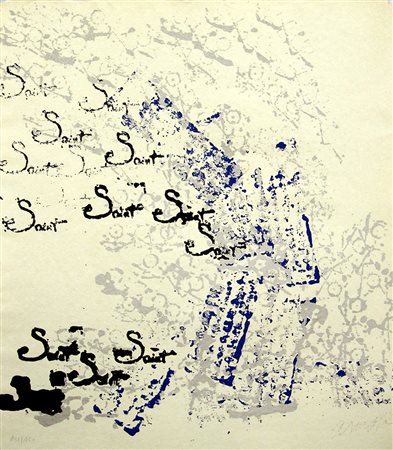 Saint
Saint
Saint
Saint
Saint
Saint Saint
Saint
Saint
Saint Saint
Saint